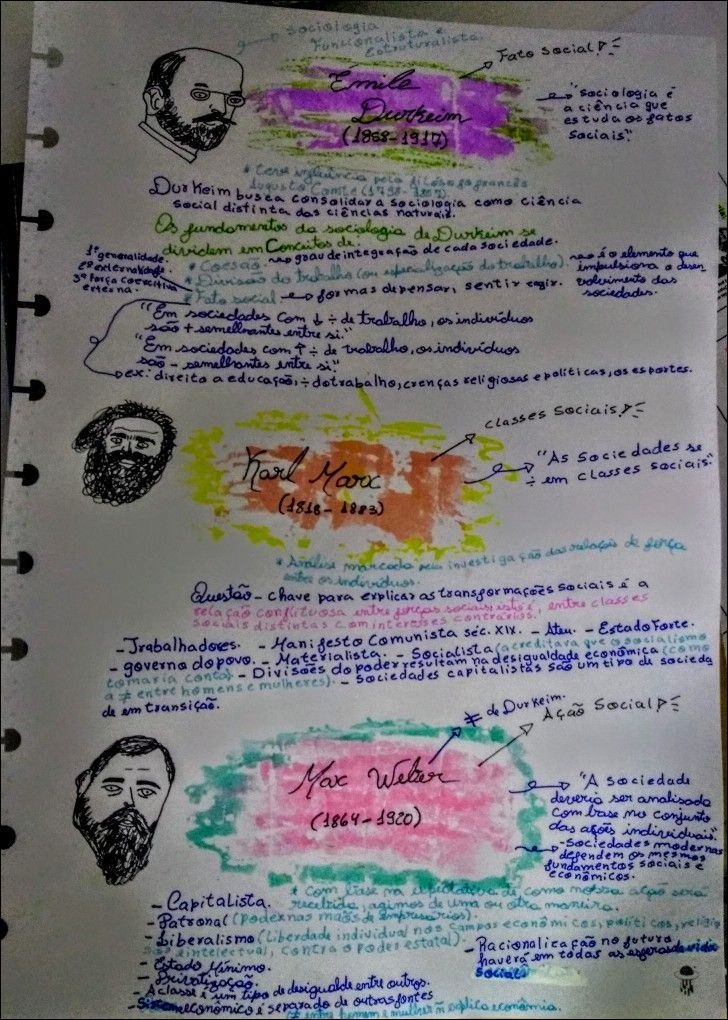 Sociologia
Funcionalista e
Estruturalista.
Fato Social!
Émile
Durkeim
(1858-1917)
"Sociologia é
a ciência que
estuda os fatos
sociais".
* Teve influência pelo filósofo francês
Augusto Comte (1798-1857)
Durkeim busca consolidar a sociologia como ciência
social distinta das ciências naturais.
Os fundamentos da sociologia de Durkeim se
dividem em Conceitos de:
* Coesão grau de integração de cada sociedade.
* Divisão do trabalho (ou especialização do trabalho). é o elemento que
impulsiona o desen
volvimento das
sociedades.
* Fato social formas de pensar, sentir e agir.
1º generalidade.
2º externalidade
3º força coercitiva
externa.
"Em sociedades com ↓ ÷ de trabalho, os indivíduos
são + semelhantes entre si."
"Em sociedades com ↑ ÷ de trabalho, os indivíduos
são - semelhantes entre si."
ex: direito a educação, ÷ do trabalho, crenças religiosas e políticas, os esportes.
classes Sociais!
Karl Marx
(1818-1883)
"As Sociedades se
÷ em classes sociais".
* Análise marcada pela investigação das relações de força
entre os indivíduos.
Questão-chave para explicar as transformações sociais é a
relação conflituosa entre forças sociais, isto é, entre classes
sociais distintas com interesses contrários.
- Trabalhadores. - Manifesto Comunista séc. XIX. - Ateu. - Estado Forte.
- governo do povo. - Materialista. - Socialista (acreditava que o socialismo
tomaria conta) - Divisões do poder resultam na desigualdade econômica (como
a ≠ entre homens e mulheres). - Sociedades capitalistas são um tipo de socieda
de em transição.
≠ de Durkeim.
Ação Social!
Max Weber
(1864-1920)
"A sociedade
deveria ser analisada
com base no conjunto
das ações individuais".
- Sociedades modernas
dependem os mesmos
fundamentos sociais e
econômicos.
* Com base na expectativa de como nossa ação será
recebida, agimos de uma ou outra maneira.
- Capitalista.
- Patronal (poder nas mãos de empresários).
- Liberalismo (liberdade individual nos campos econômicos, políticos, religio
so e intelectual, contra o poder estatal).
- Racionalização no futuro
haverá em todas as esferas da vida
social.
- Estado Mínimo.
- Privatização.
- A classe é um tipo de desigualde entre outros.
- Sistema econômico é separado de outras fontes
≠ entre homem e mulher ñ explica economia.